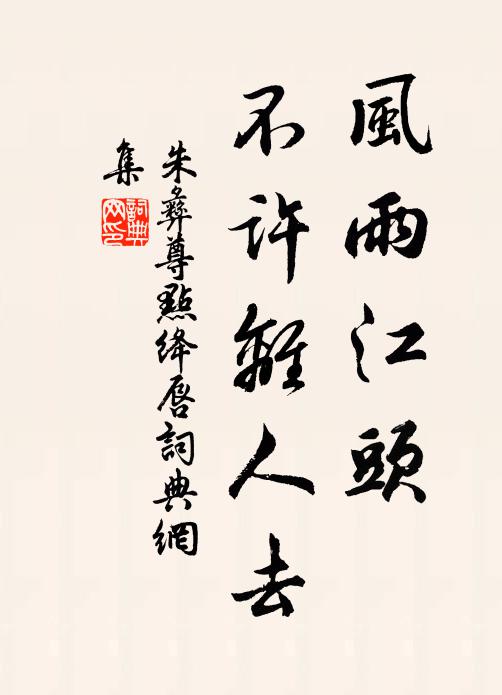 風雨江頭
不許離人去
朱彝尊點絳唇詞典網
集
詞典网印